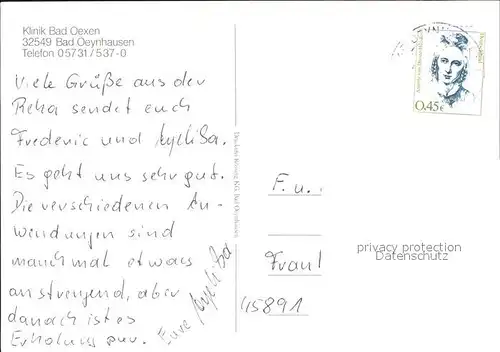 Klinik Bad Oexen
32549 Bad Oeynhausen
Telefon 05731/537-0
Viele Grüße aus der
Reha sendet euch
Frederic und
Es geht uns sehr gut.
Die verschiedenen An-
wendungen sind
manchmal etwas
anstrengend, aber
danach ist es
Erholung pur.
Eure
F. u.
Frau
45891
privacy protection
Datenschutz
0,45€